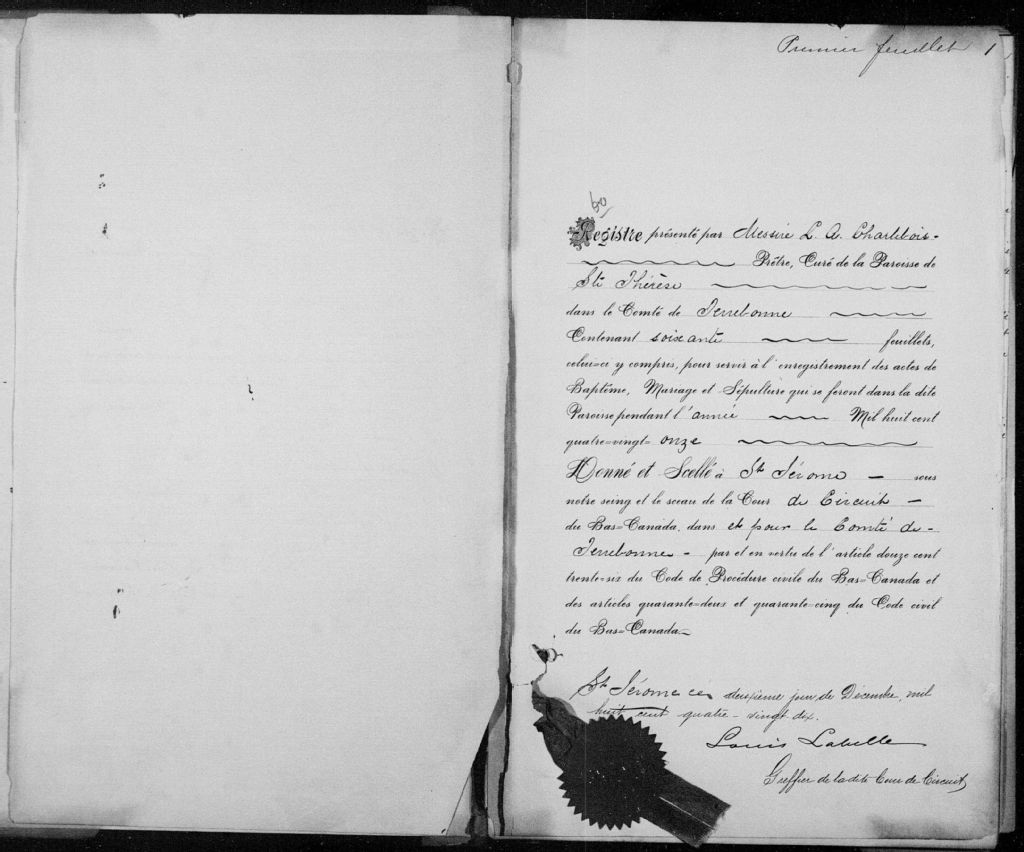 Premier feuillet 1
60
Registre présenté par Messire L. A. Charlebois -
Prêtre, Curé de la Paroisse de
Ste Thérèse
dans le Comté de Terrebonne
Contenant soixante feuillets,
celui=ci y compris, pour servir à l'enregistrement des actes de
Baptême, Mariage et Sépulture qui se feront dans la dite
Paroisse pendant l'année Mil huit cent
quatre=vingt= onze
Donné et Scellé à St Jérome - sous
notre seing et le sceau de la Cour de Circuit -
du Bas=Canada, dans et pour le Comté de -
Terrebonne - par et en vertu de l'article douze cent
trente=six du Code de Procédure civile du Bas=Canada et
des articles quarante=deux et quarante=cinq du Code civil
du Bas=Canada
St Jérome ce deuxième jour de Décembre, mil
huit cent quatre-vingt dix.
Louis Labelle
Greffier de la dite Cour de Circuit,